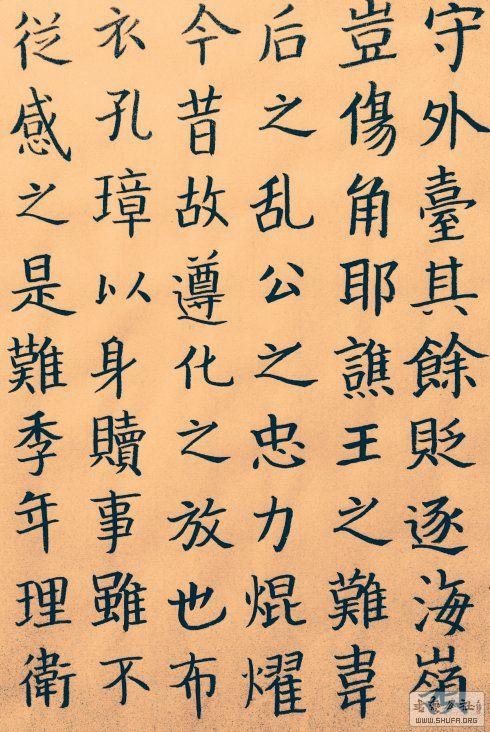 守外臺其餘貶逐海嶺
豈傷角耶譙王之難韋
后之乱公之忠力焜燿
今昔故遵化之放也布
衣孔璋以身贖事雖不
従感之是難季年理衛
WWW.SHUFA.ORG